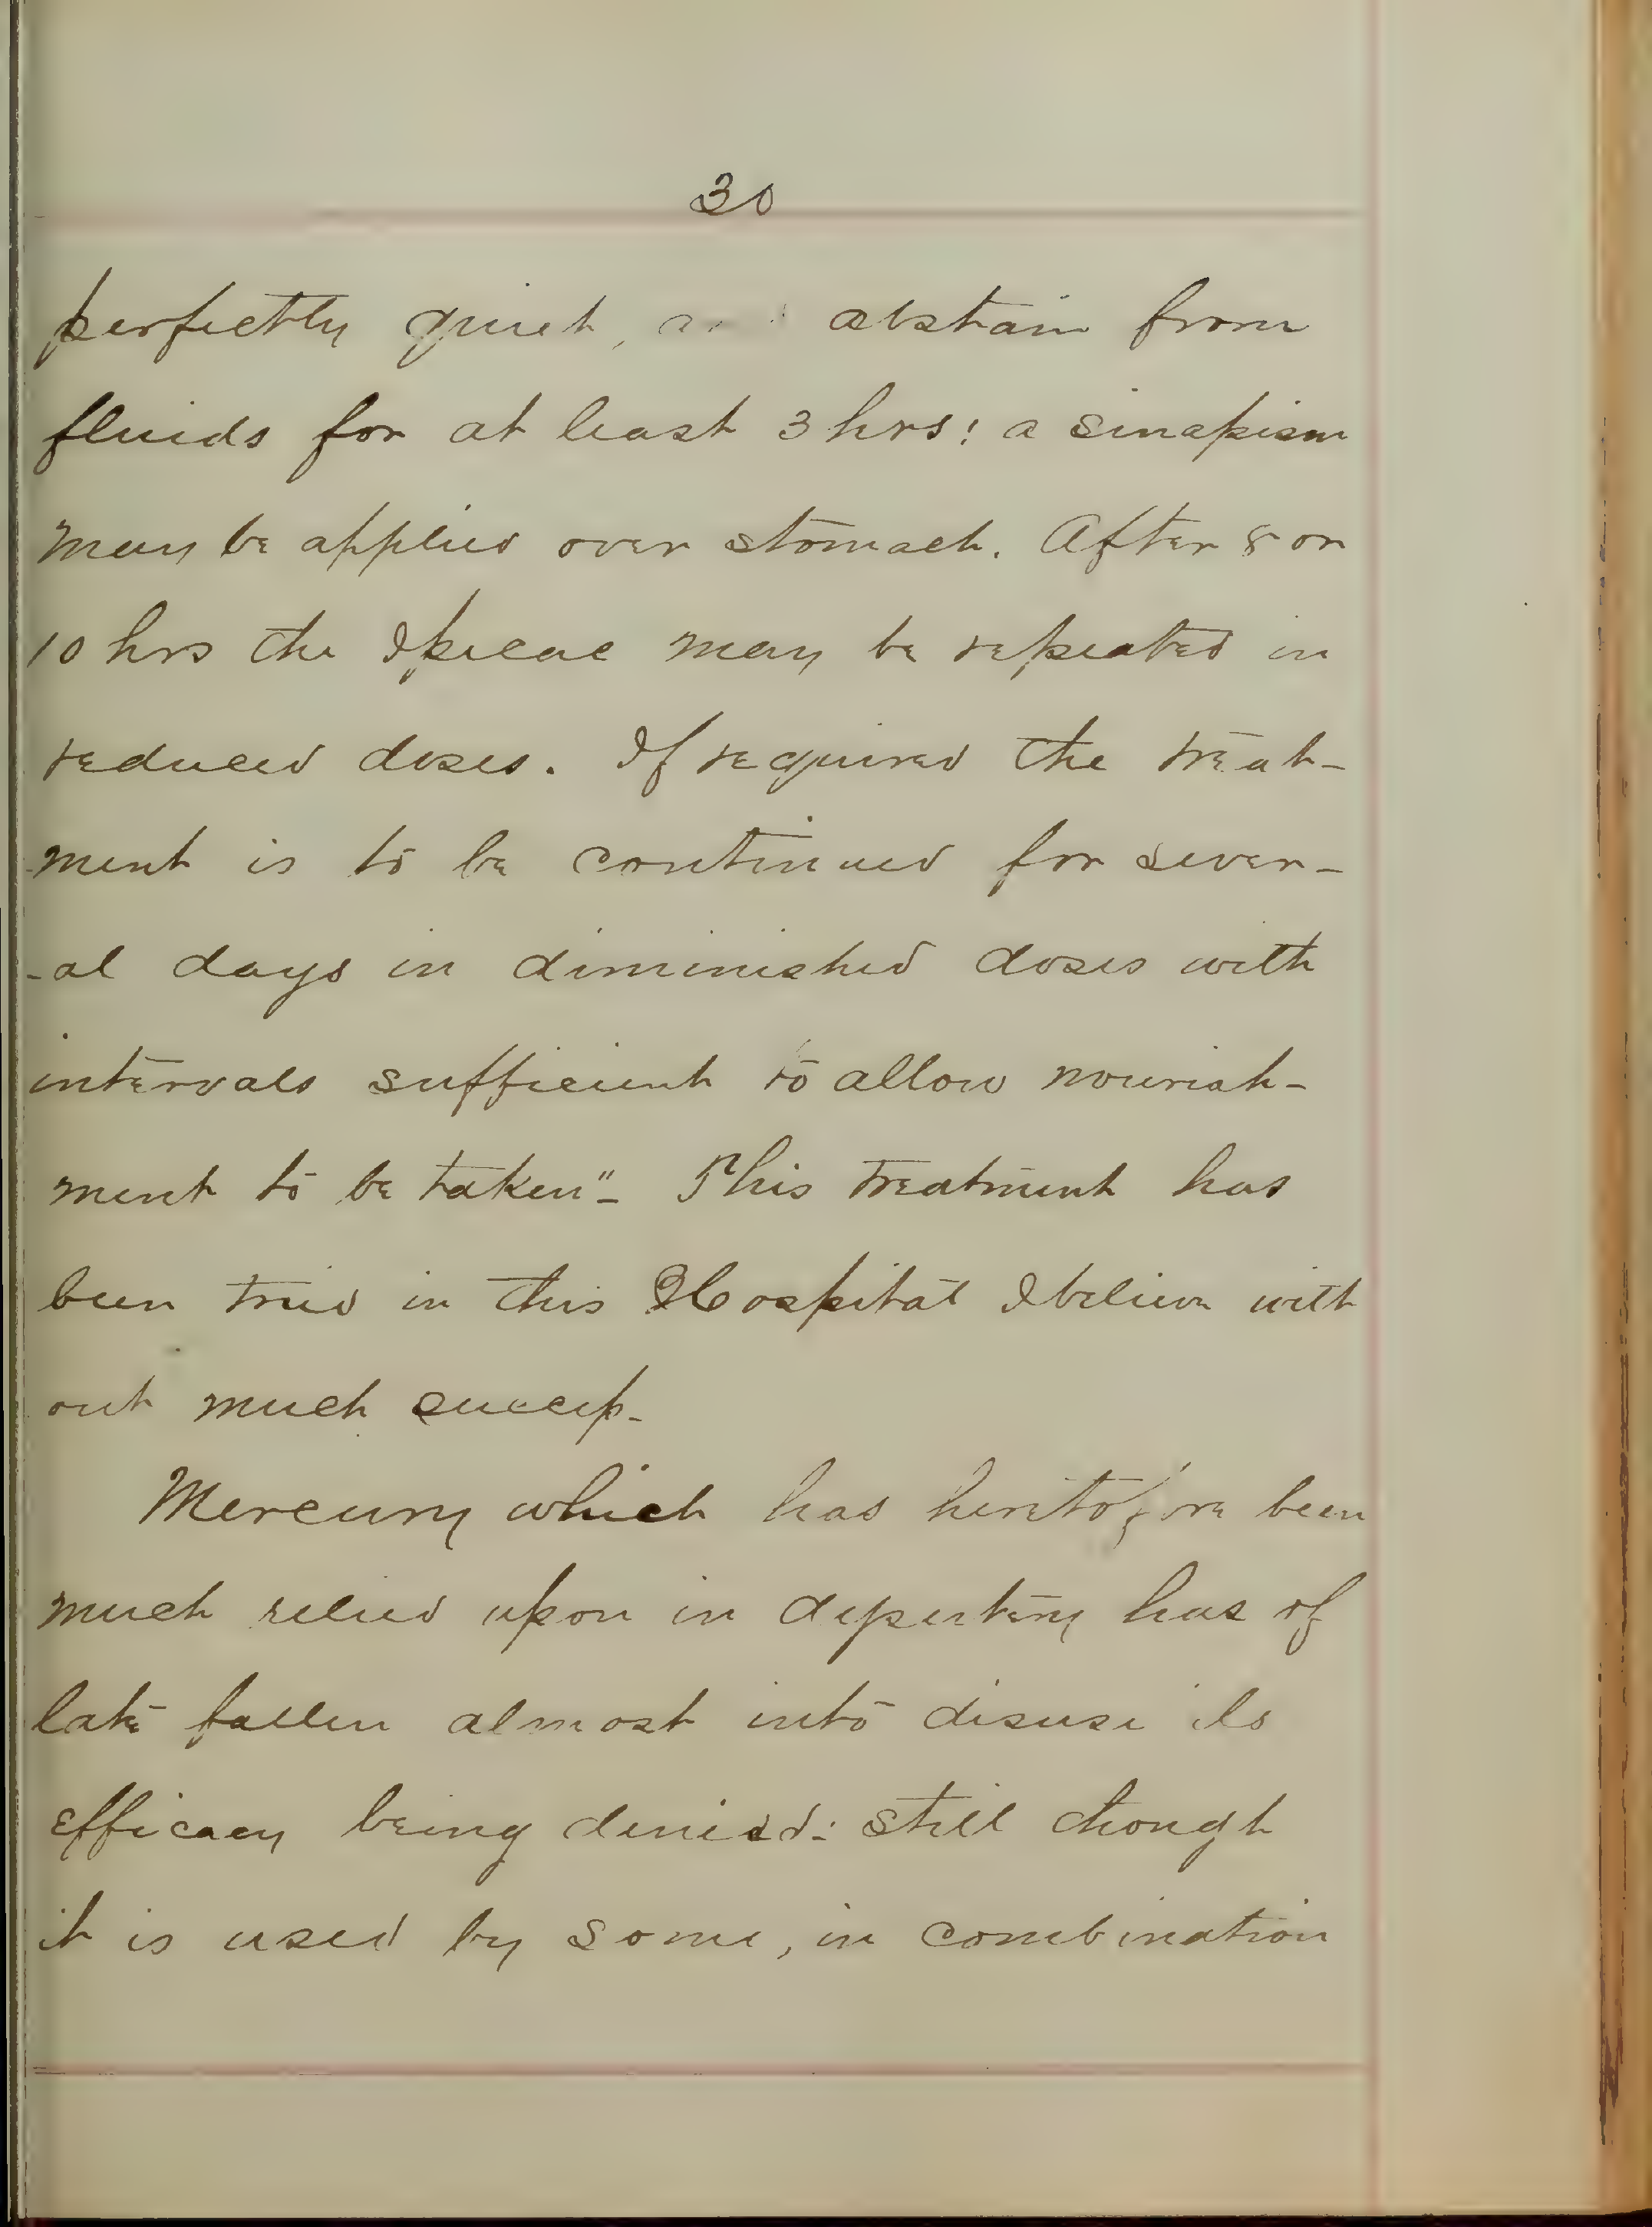 30
perfectly quiet, and abstain from
fluids for at least 3 hrs: a sinapism
may be applied over stomach. After 8 or
10 hrs the Ipecac may be repeated in
reduced doses. If required the treat-
ment is to be continued for sever-
-al days in diminished doses with
intervals sufficient to allow nourish-
ment to be taken"- This treatment has
been tried in this Hospital I believe with
out much success-
Mercury which has heretofore been
much relied upon in dysentery has of
late fallen almost into disuse its
efficacy being denied: still though
it is used by some, in combination